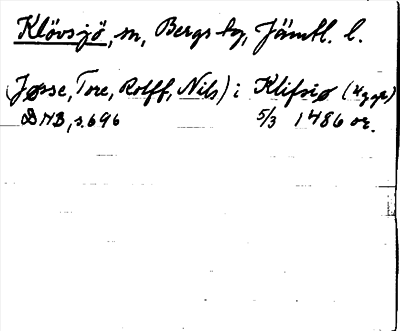 Klövsjö, sn, Bergs tg, Jämtl. l.
(Jøsse, Tore, Rolff, Nils) i Klifsiø (4 ggr)
DNB, s. 696 5/3 1486 or.